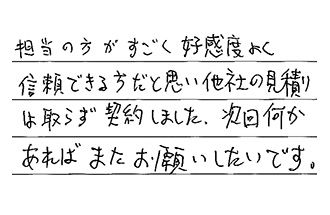 担当の方がすごく好感度よく
信頼できる方だと思い他社の見積り
は取らず契約しました、次回何か
あればまたお願いしたいです。